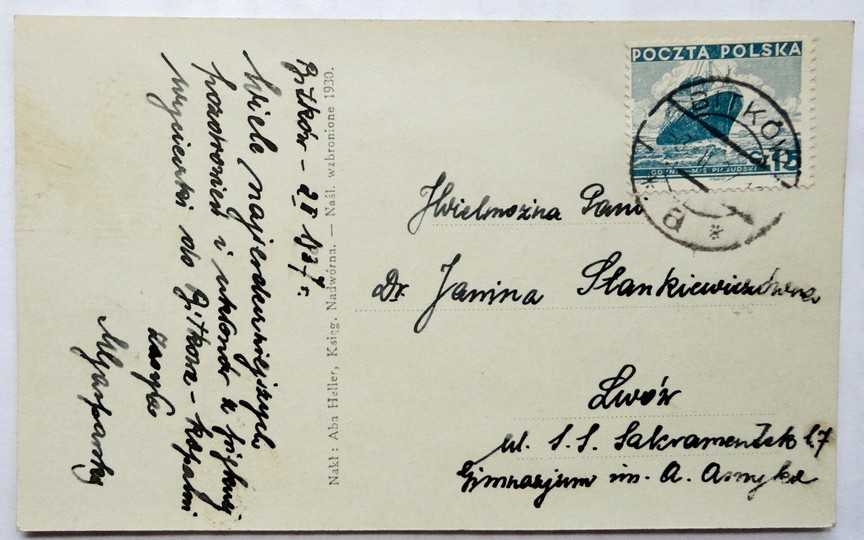 Bitków – 2 V 1937 r.
Wiele najserdeczniejszych
pozdrowień i ukłonów z pięknej
wycieczki do Bitkowa – kopalni
zasyła
Nakł: Aba Heller, Księg. Nadwórna. — Naśl. wzbronione 1930.
POCZTA POLSKA
GDYNIA-M/S PIŁSUDSKI
15
a
JWielmożna Pani
Dr. Janina Stankiewiczówna
Lwów
ul. S.S. Sakramentek l. 7
Gimnazjum im. A. Asnyka